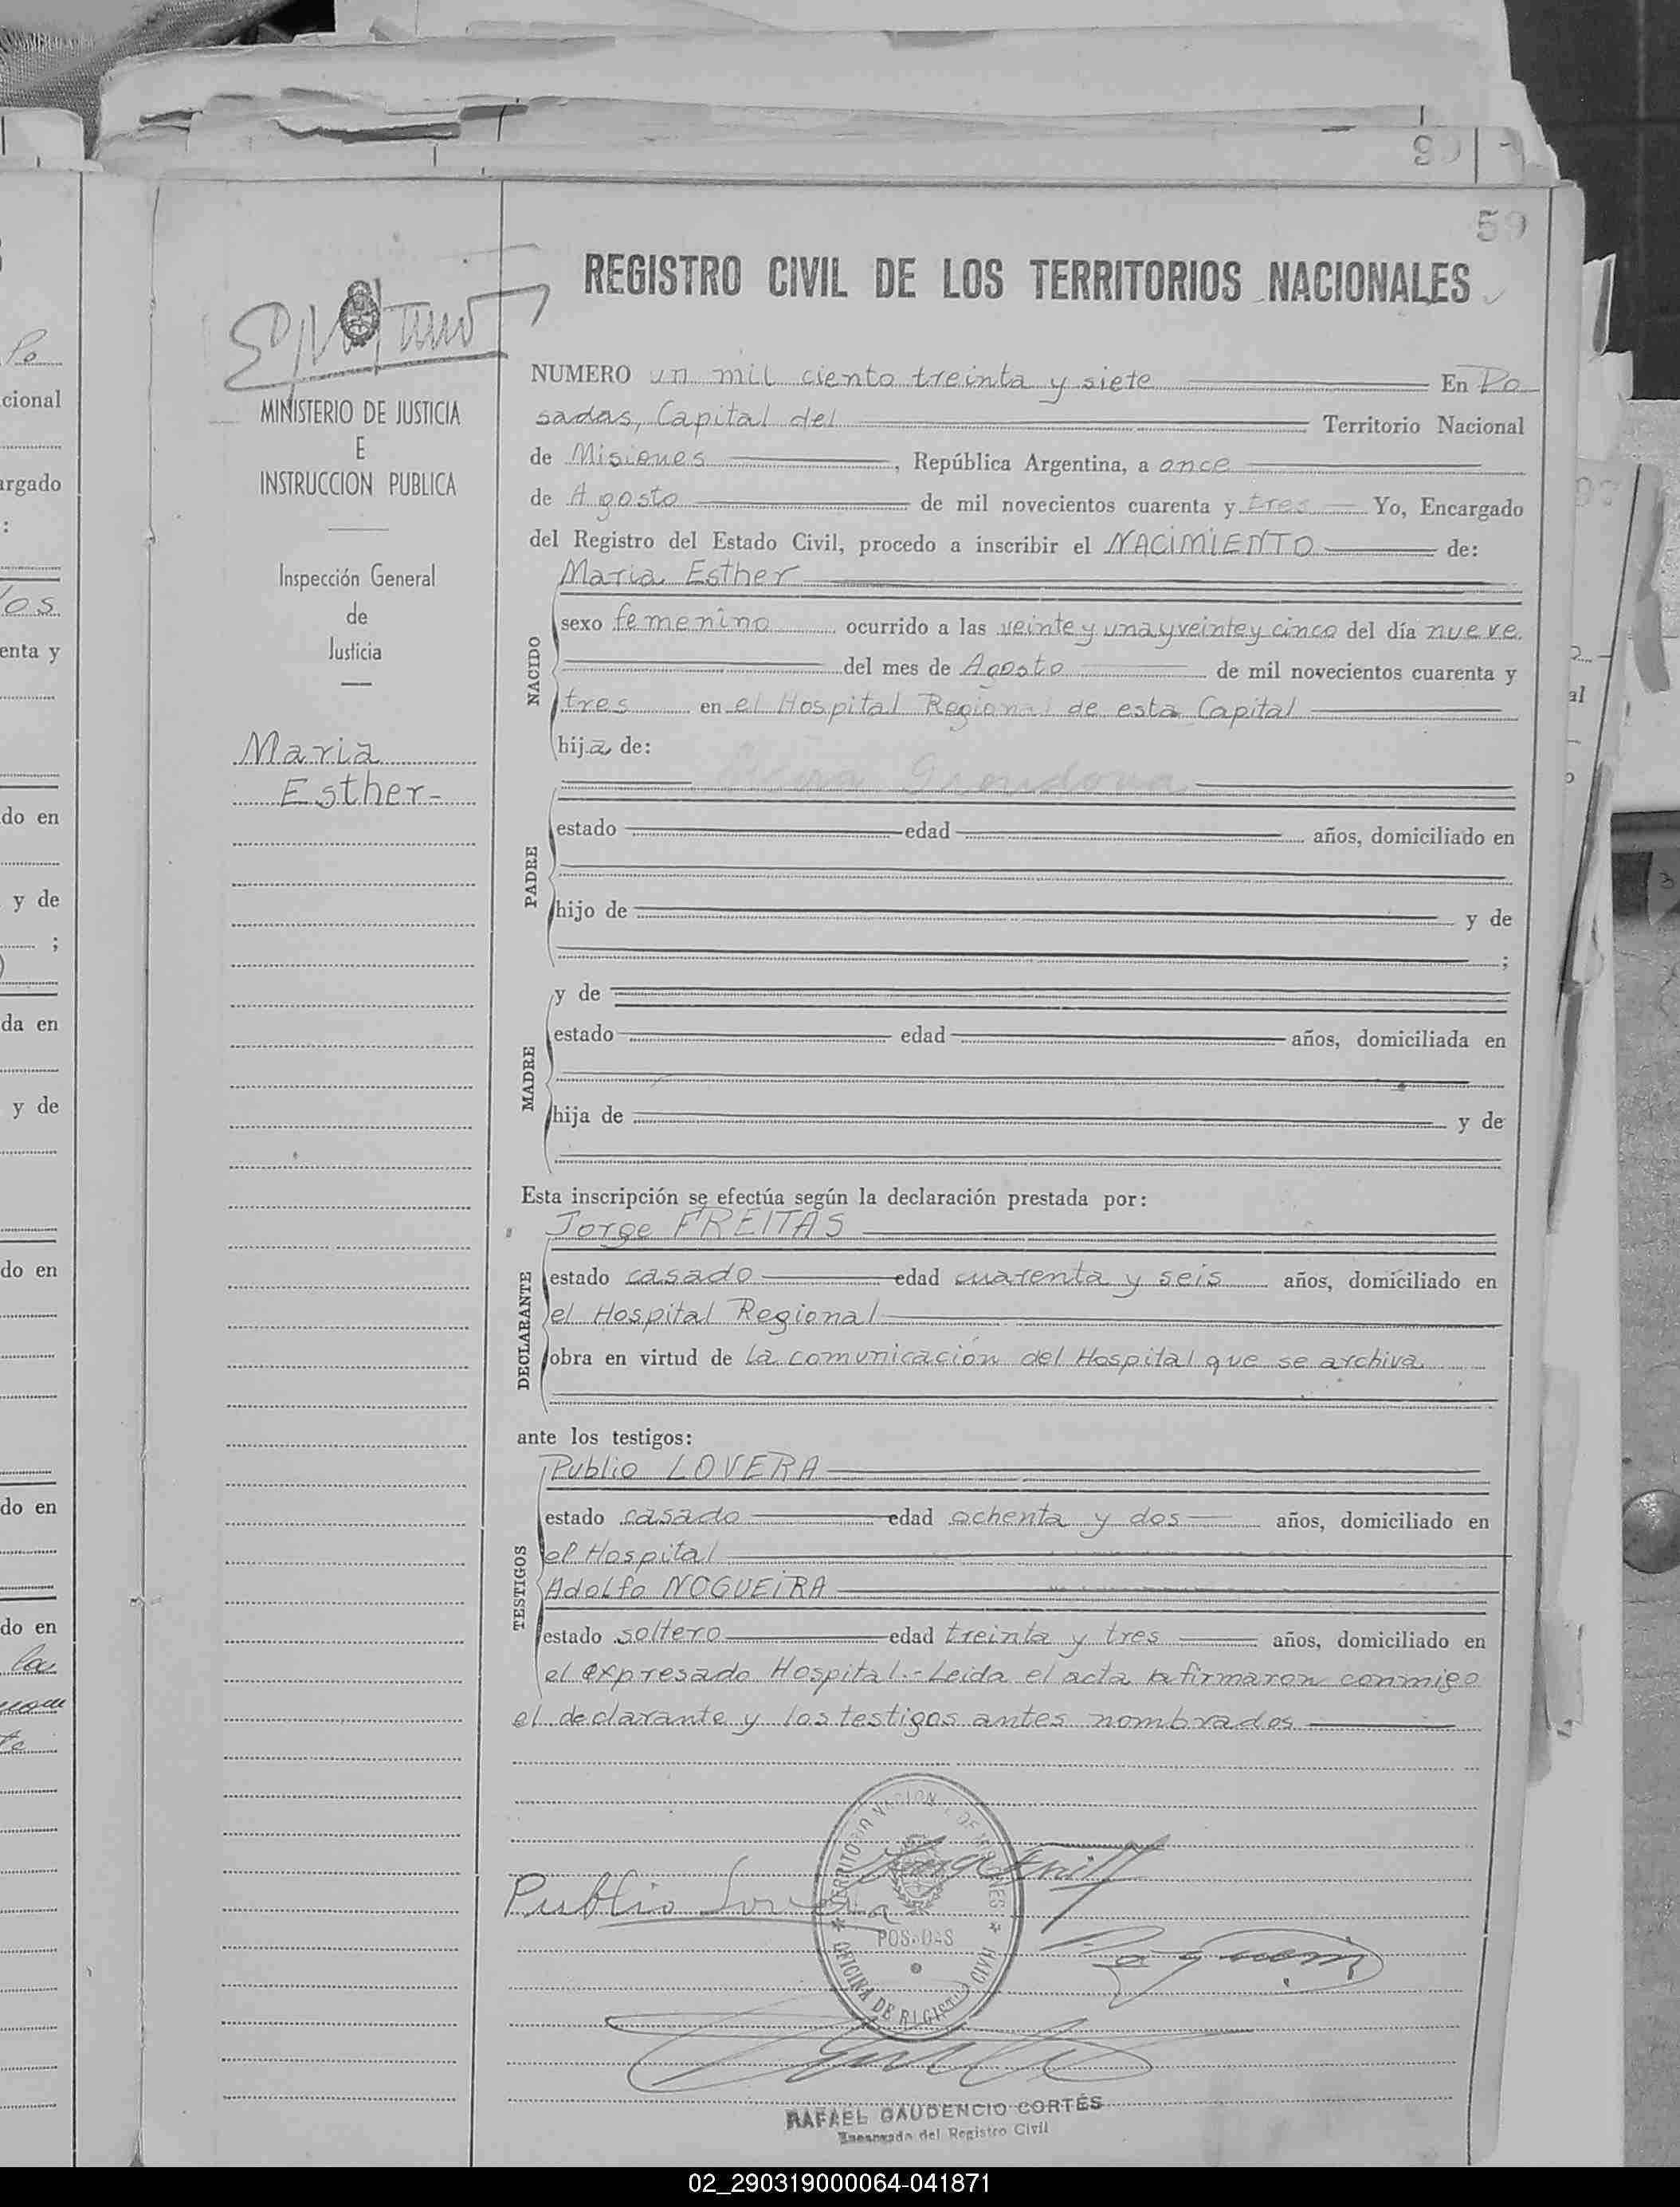 59
REGISTRO CIVIL DE LOS TERRITORIOS NACIONALES
MINISTERIO DE JUSTICIA
E
INSTRUCCION PUBLICA
Inspección General
de
Justicia
Maria
Esther-
NUMERO un mil ciento treinta y siete En Po
sadas, Capital del Territorio Nacional
de Misiones, República Argentina, a once
de Agosto de mil novecientos cuarenta y tres Yo, Encargado
del Registro del Estado Civil, procedo a inscribir el NACIMIENTO de:
NACIDO
Maria Esther
sexo femenino ocurrido a las veinte y una y veinte y cinco del día nueve
del mes de Agosto de mil novecientos cuarenta y
tres en el Hospital Regional de esta Capital
hija de:
PADRE
estado edad años, domiciliado en
hijo de y de
;
MADRE
y de
estado edad años, domiciliada en
hija de y de
Esta inscripción se efectúa según la declaración prestada por:
DECLARANTE
Jorge FREITAS
estado casado edad cuarenta y seis años, domiciliado en
el Hospital Regional
obra en virtud de la comunicación del Hospital que se archiva
ante los testigos:
TESTIGOS
Publio LOVERA
estado casado edad ochenta y dos años, domiciliado en
el Hospital
Adolfo NOGUEIRA
estado soltero edad treinta y tres años, domiciliado en
el expresado Hospital.- Leida el acta la firmaron conmigo
el declarante y los testigos antes nombrados
TERRITORIO NACIONAL DE MISIONES
POSADAS
OFICINA DE REGISTRO CIVIL
Publio Lovera
RAFAEL GAUDENCIO CORTÉS
Encargado del Registro Civil
02_290319000064-041871